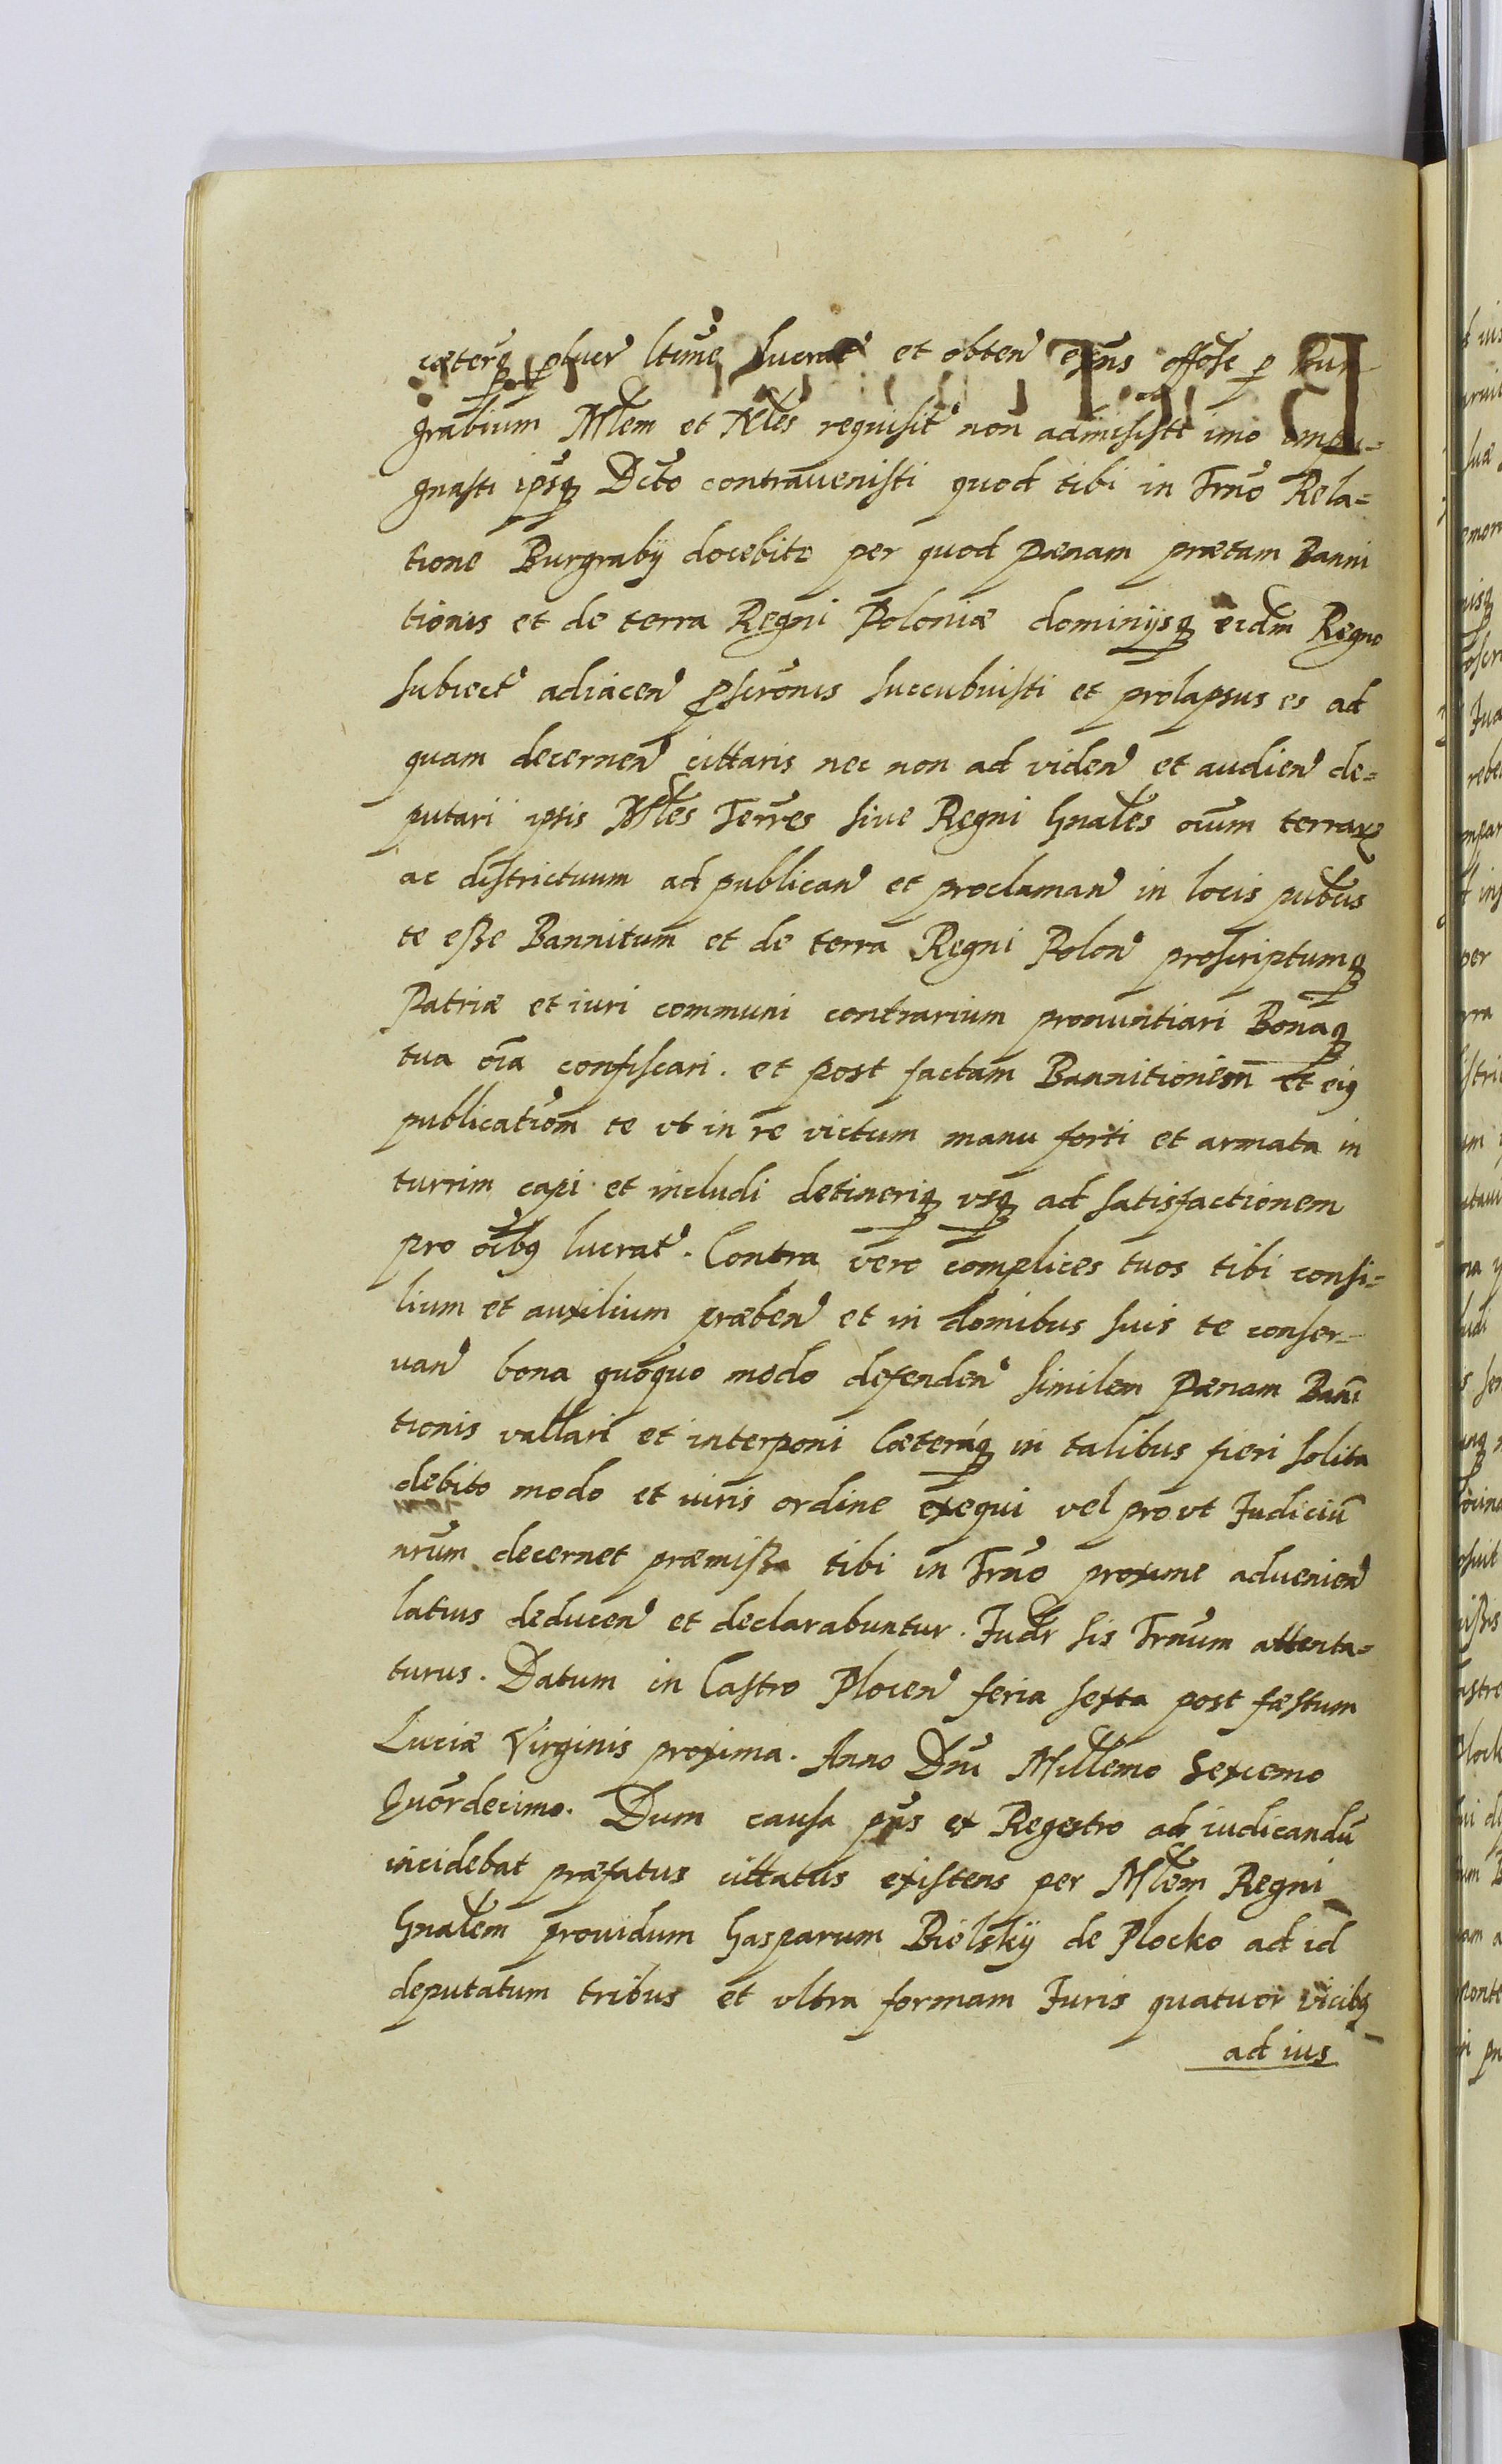 cæterq̃ pluer ltime lucrat et obten exñs offose p Bur
grabium Mlem et Nles requisit non admisisti imo impu=
gnasti ipsq Dcto contrauenisti quod tibi in Trno Rela=
tione Burgrabÿ docebitr per quod pænam prætam Banni
tionis et de terra Regni Poloniæ dominÿsq eidm Regno
subiect adiacen pscronis succubuisti et prolapsus es ad
quam decernen cittaris nec non ad viden et audien de=
putari ipsis Mles Terres siue Regni Gnales oium terrarx
ac districtuum ad publican et proclaman in locis pubcis
te eße Bannitum et de terra Regni Polon proscriptumq
Patriæ et iuri communi contrarium pronuntiari Bonaq
tua oia confiscari. et post factam Bannitionem et eiq
publicatiom te vt in re victum manu forti et armata in
turrim capi et includi detineriq vsq ad satisfactionem
pro oibq lucrat. Contra vero complices tuos tibi consi=
lium et auxilium præben et in domibus suis te conser=
uan bona quoquo modo defenden similem pænam Banī
tionis vallari et interponi Cæteráq in talibus fieri solita
debito modo et iuris ordine exequi vel pro vt Iudiciū
nrum decernet præmißa tibi in Trno proxime aduenien
latius deducen et declarabuntur. Iudr sis Trnum attenta=
turus. Datum in Castro Plocen feria sexta post fæstum
Luciæ Virginis proxima. Anno Dni Millemo Sexcemo
Quordecimo. Dum causa pñs ex Regestro ad iudicandū
incidebat præfatus cittatus existens per Mlem Regni
Gnalem prouidum Gasparum Bielskÿ de Plocko ad id
deputatum tribus et vltra formam Iuris quatuor vicibq
ad ius